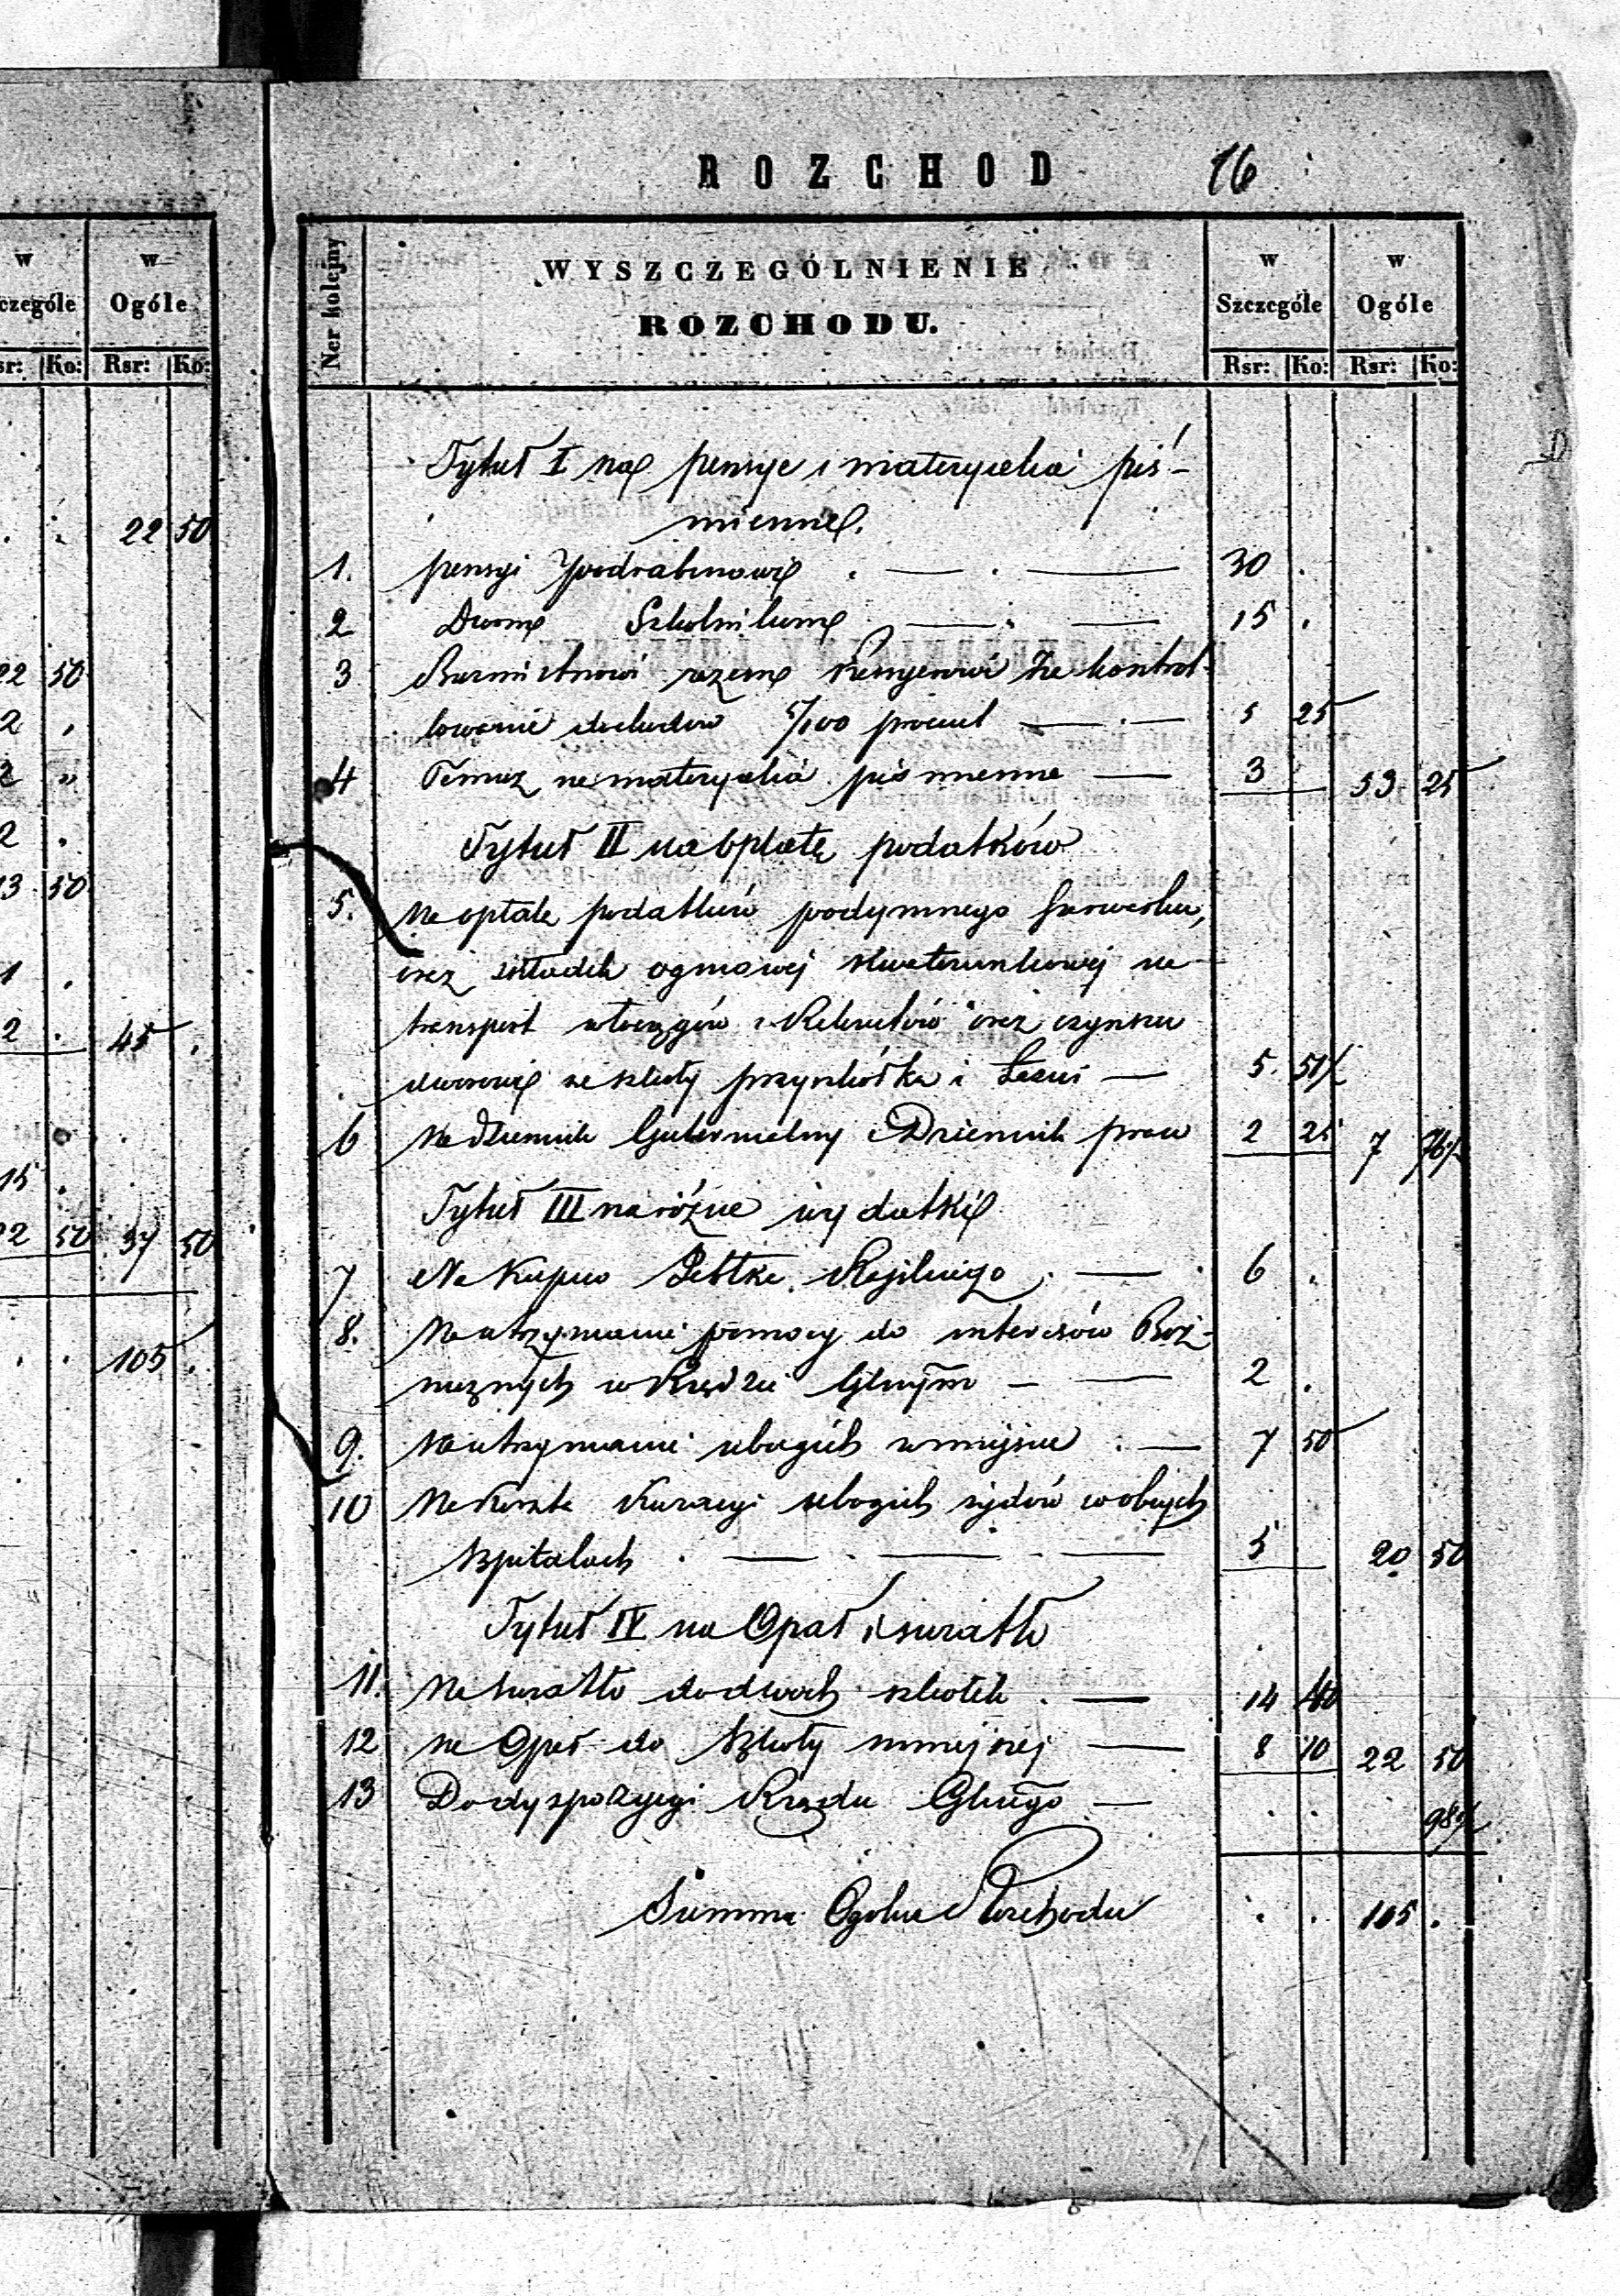 w
czególe
w
Ogóle
sr: Ko: Rsr: Ko:
22 50
22 50
2
2 „
2 .
13 50
1 .
2 . 45 .
15 .
22 50 37 50
105 .
ROZCHOD 16
Ner kolejny
WYSZCZEGÓLNIENIE
ROZCHODU.
w
Szczególe
w
Ogóle
Rsr: Ko: Rsr: Ko:
Tytuł I na pensye i materyalia piś-
mienne.
1. pensyi Podrabinowi . — . — 30 .
2 Dwom Szkolnikom — . — 15 .
3 Burmistrzowi razem Kassyerowi za kontrol-
lowanie dochodów 5/100 procent — . — 5 25
4 Temuż na materyalia piśmienne — 3 53 25
Tytuł II na opłatę podatków
5. Na opłatę podatków podymnego
oraz składek ogniowej kwaterunkowej na
transport włóczęgów i Rekrutów oraz czynszu
ze szkoły przyszkółka i Łazni — 5. 51½
6 Na Dziennik Gubernialny i Dziennik praw 2 25 7 76½
Tytuł III na różne wydatki
7 Na Kupno Jabłka Rajskiego . — . 6 .
8. Na utrzymanie pomocy do interesów Boż-
niczych w Rządzie Glnym — — 2 .
9. Na utrzymanie ubogich w miejscu . — 7 50
10 Na Koszta Kuracyi ubogich żydów w obcych
Szpitalach . — . — . — 5 20 50
Tytuł IV na Opał i światło
11. Na światło do dwóch szkółek . — 14 40
12 na Opał do Szkoły mniejszej — 8 10 22 50
13 Do dyspozycyi Rządu Glnego — . . 98½
Summa Ogólna Rozchodu . . 105 .